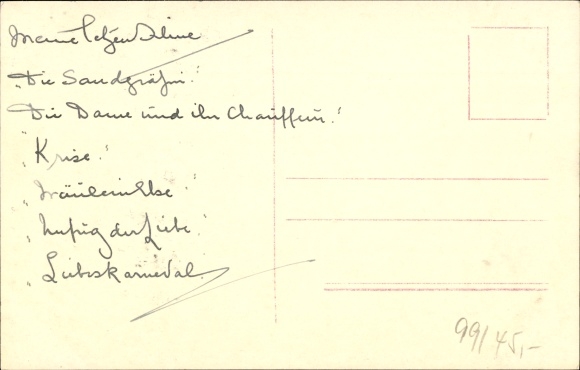 Meine letzen Filme
"Die Sandgräfin."
"Die Dame und ihr Chauffeur."
"Krise."
"Fräulein Else."
"Unfug der Liebe."
"Liebeskarneval.
99/45,-